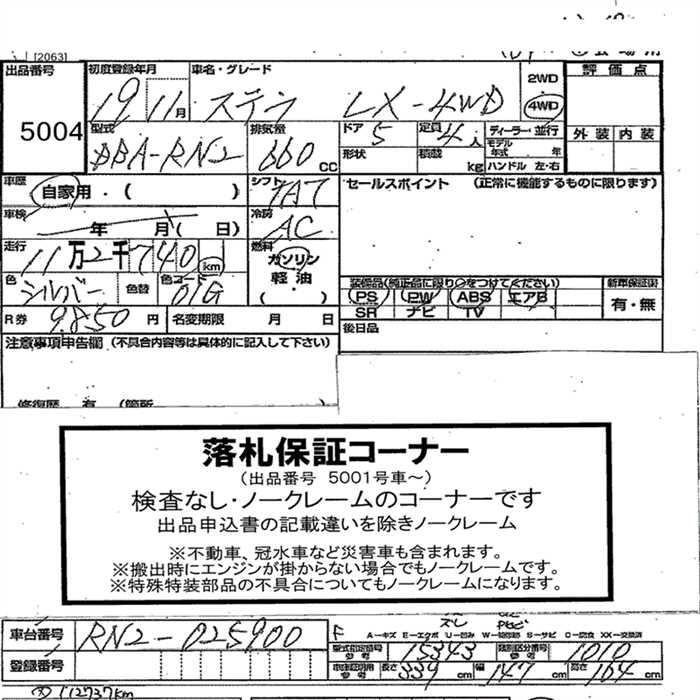 [2063]
出品番号 初度登録年月 車名・グレード 2WD 評価点
5004 19 11月 ステラ LX-4WD 4WD
型式 排気量 ドア 定員 ディーラー・並行 外装 内装
DBA-RN2 660 CC 5 4人 モデル年式 年
形状 積載 kg ハンドル 左・右
車歴 自家用・( ) シフト 7AT セールスポイント (正常に機能するものに限ります)
車検 年 月( 日) 冷房 AC
走行 11万2千740 km 燃料 ガソリン 軽油 ・( )
色 シルバー 色替 色コード 01G
装備品(純正品に限り○をつけてください) 新車保証書
PS PW ABS エアB 有・無
SR ナビ TV
R券 9,850円 名変期限 月 日 後日品
注意事項申告欄 (不具合内容等は具体的に記入して下さい)
修復歴 有 (箇所
落札保証コーナー
(出品番号 5001号車~)
検査なし・ノークレームのコーナーです
出品申込書の記載違いを除きノークレーム
※不動車、冠水車など災害車も含まれます。
※搬出時にエンジンが掛からない場合でもノークレームです。
※特殊特装部品の不具合についてもノークレームになります。
車台番号 RN2-025900 F A-キズ E-エクボ U-凹み W-補修跡 S-サビ C-腐食 XX-交換済
型式指定番号 参考 15343 類別区分番号 参考 1010
登録番号 車検証明用 参考 長さ 339cm 幅 147cm 高さ 164cm
112737km